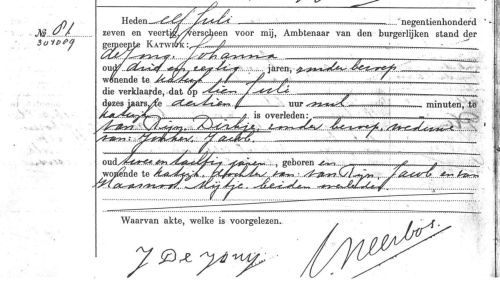 No 81
Heden elf Juli negentienhonderd
zeven en veertig, verscheen voor mij, Ambtenaar van den burgerlijken stand der
gemeente KATWIJK:
de Jong, Johanna
oud drie en zestig jaren, zonder beroep
wonende te Katwijk
die verklaarde, dat op tien Juli
dezes jaars, te dertien uur nul minuten, te
Katwijk is overleden:
van Rijn, Dirkje, zonder beroep, weduwe
van: Jacob.
oud twee en tachtig jaren, geboren en
wonende te Katwijk, dochter van: van Rijn, Jacob en van
beiden overleden
Waarvan akte, welke is voorgelezen.
J De Jong